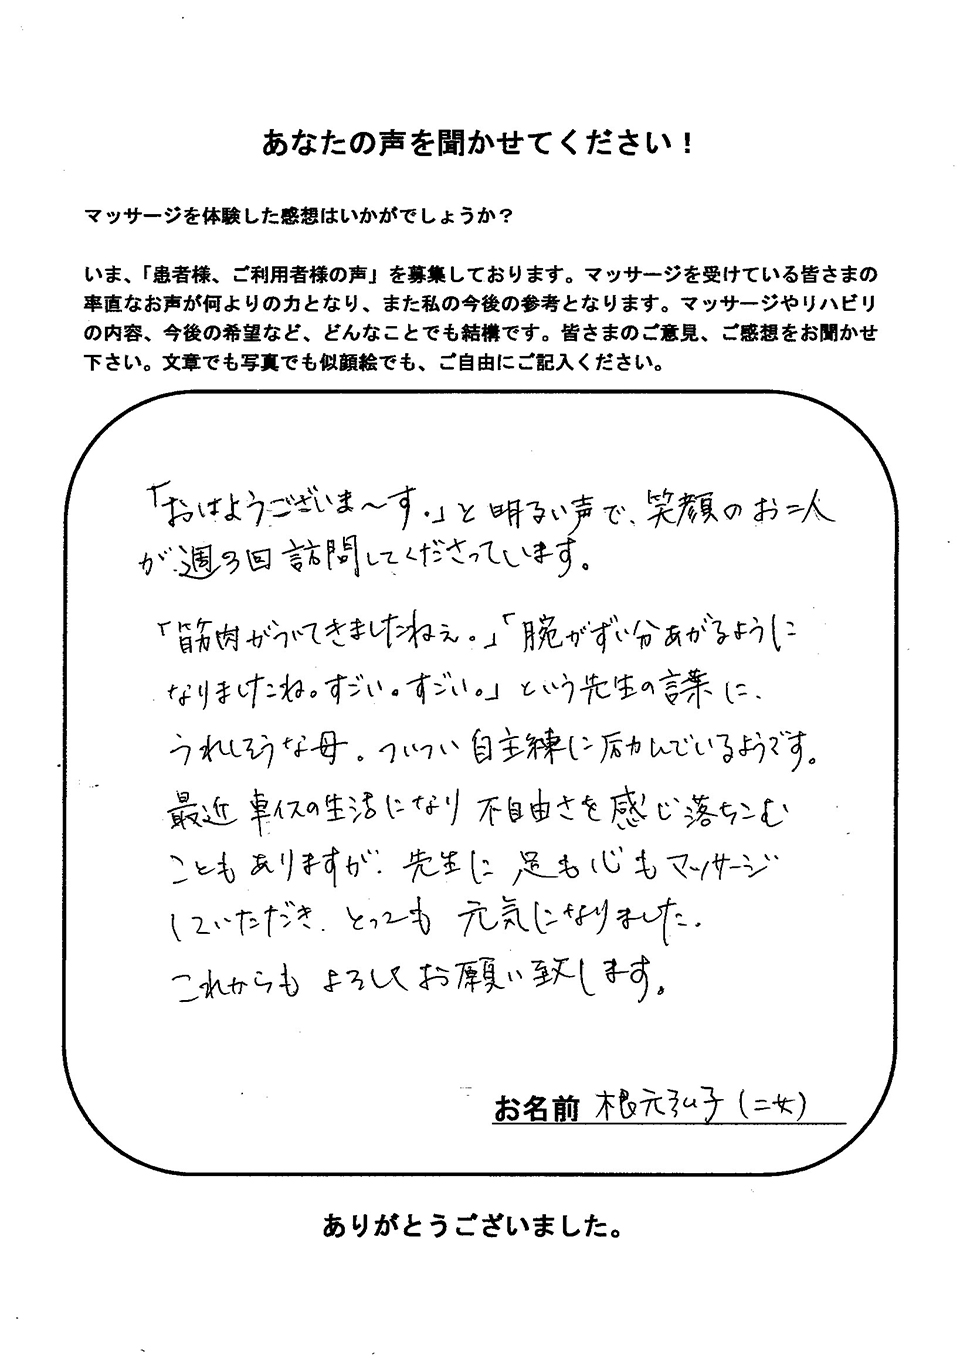 あなたの声を聞かせてください！
マッサージを体験した感想はいかがでしょうか？
いま、「患者様、ご利用者様の声」を募集しております。マッサージを受けている皆さまの
率直なお声が何よりの力となり、また私の今後の参考となります。マッサージやリハビリ
の内容、今後の希望など、どんなことでも結構です。皆さまのご意見、ご感想をお聞かせ
下さい。文章でも写真でも似顔絵でも、ご自由にご記入ください。
「おはようございま〜す。」と明るい声で、笑顔のお二人
が週3回訪問してくださっています。
「筋肉がついてきましたねぇ。」「腕がずい分あがるように
なりましたね。すごい。すごい。」という先生の言葉に、
うれしそうな母。ついつい自主練に励んでいるようです。
最近車イスの生活になり不自由さを感じ落ちこむ
こともありますが、先生に足も心もマッサージ
していただき、とっても元気になりました。
これからもよろしくお願い致します。
お名前 根元弘子（二女）
ありがとうございました。